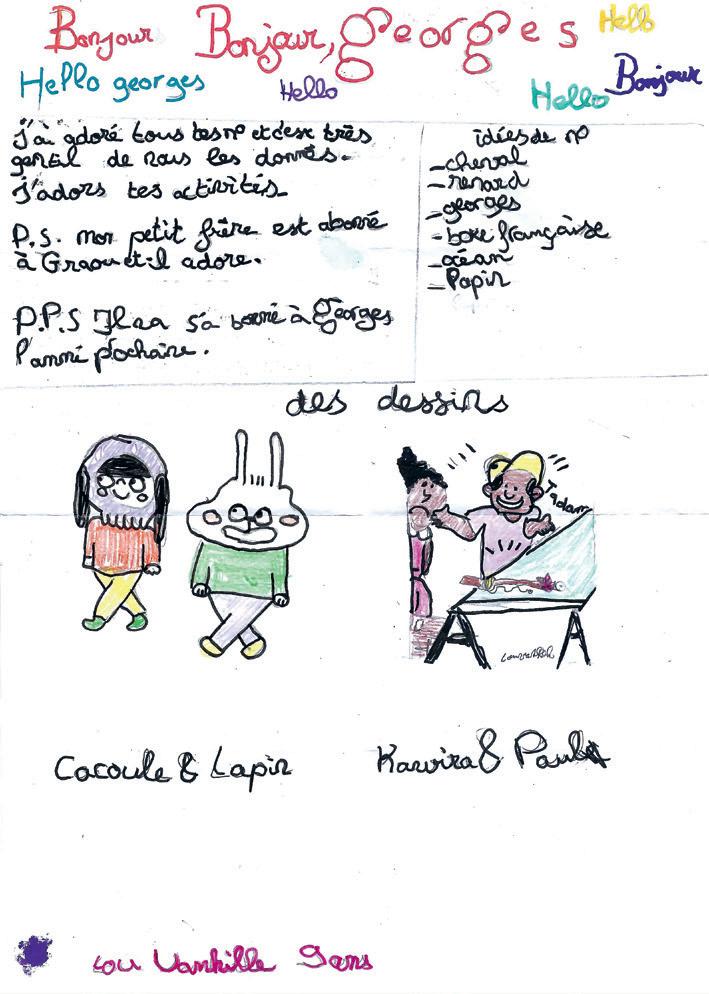 Bonjour Bonjour, georges Hello
Hello georges Hello Hello Bonjour
J'ai adoré tous tes n° et c'est très
gentil de nous les donnés.
J'adors tes activités
P.S. mon petit frère est abonné
à Graou et il adore.
P.P.S Il va s'a bonné à Georges
l'anné prochaine.
idées de n°
- cheval
- renard
- georges
- boxe française
- océan
- Papin
des dessins
Tadam
Cacoule & Lapin
Kawira & Paul
Lou 9ans